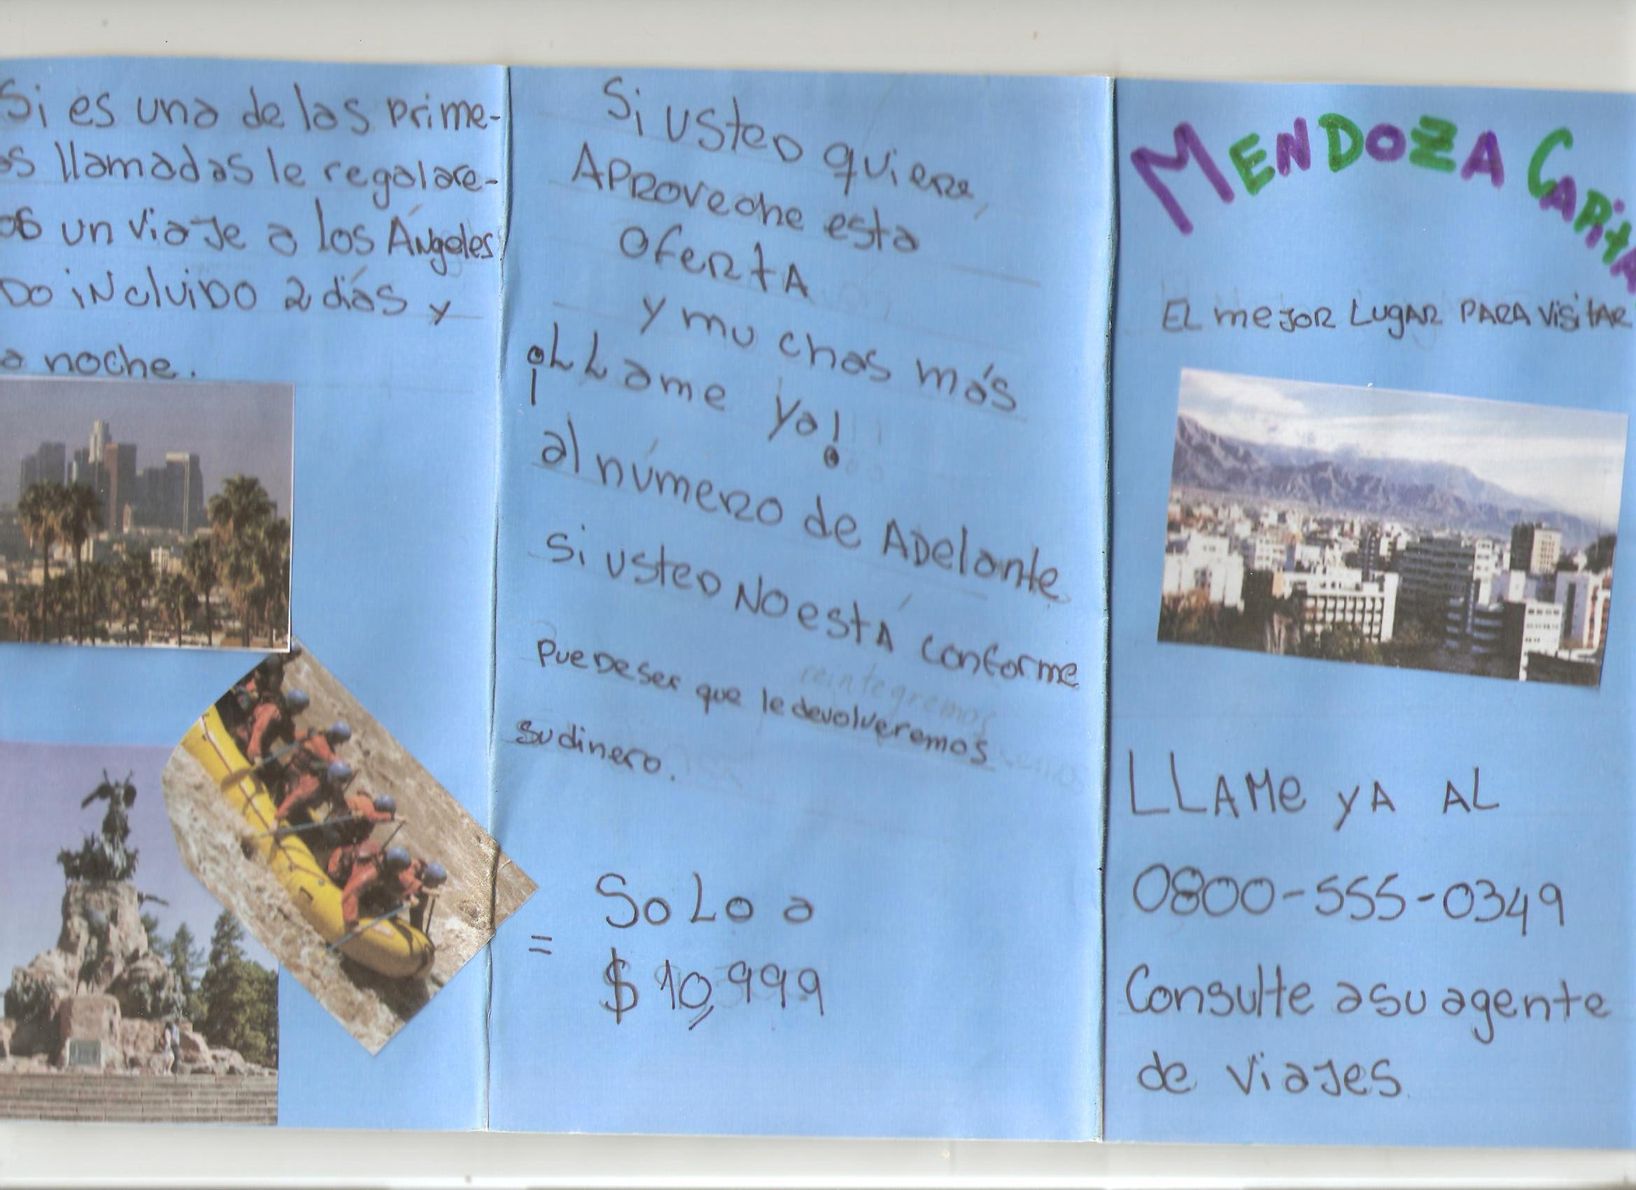 Si es una de las prime-
as llamadas le regalare-
os un viaje a los Ángeles
do incluido 2 días y
a noche.
Si usted quiere,
Aproveche esta
oferta
y muchas más
¡LLame ya!
al número de Adelante
si usted No está conforme
puede ser que le devolveremos
reintegremos
su dinero.
= SoLo a
$10,999
MENDOZA CAPITA
EL mejor Lugar para visitar
LLAMe yA AL
0800-555-0349
Consulte a su agente
de viajes